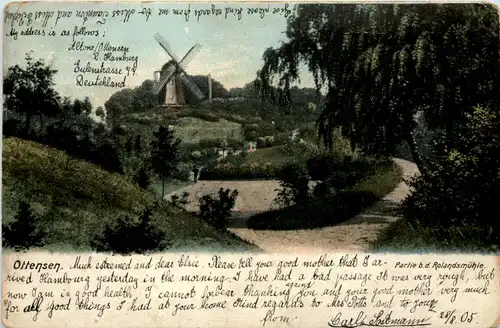 My address is as follows:
Altona/Ottensen
b. Hamburg
Eulenstrasse 79.
Deutschland
Ottensen.
Partie b. d. Rolandsmühle.
Much esteemed and dear Elsie. Please tell your good mother that I ar-
rived Hambourg yesterday in the morning. I have had a bad passage it was very rough, but
now I am in good health. I cannot forbear thanking you and your good mother very much
for all good things I had at your home. Kind regards to Mrs Potts and to you
from
24/6. 05.